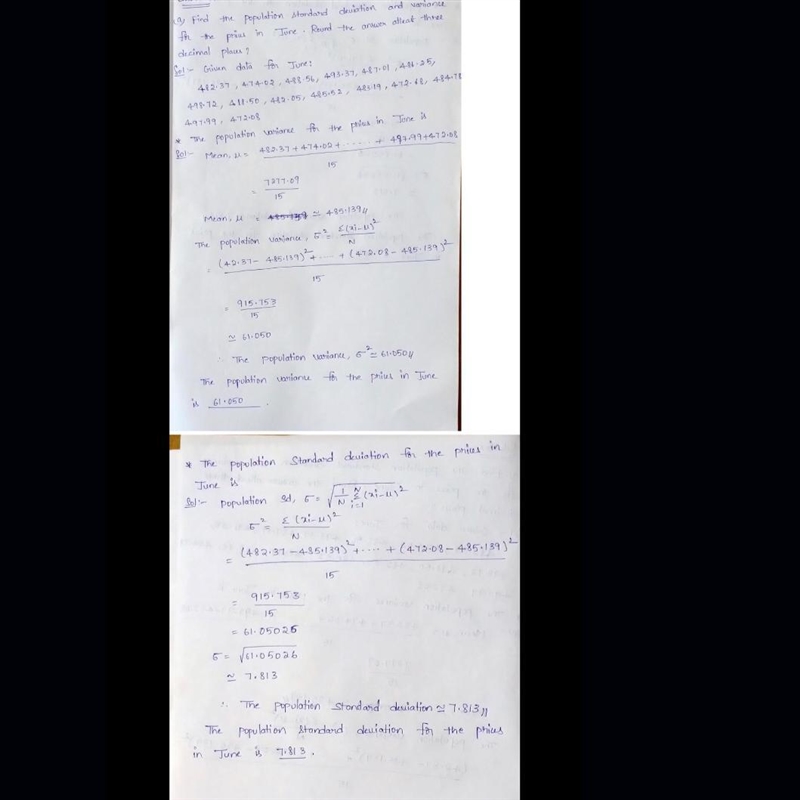 Find the population standard deviation and variance
for the prices in June. Round the answer atleat three
decimal places?
Sol:- Given data for June:
482.37, 474.02, 488.56, 493.37, 487.01, 481.25,
498.72, 488.50, 482.05, 485.52, 481.19, 472.68, 484.78
497.99, 472.08
* The population variance for the prices in June is
Sol:- Mean, μ = 482.37 + 474.02 + ...... + 497.99 + 472.08
15
= 7277.09
15
Mean, μ = ≃ 485.139//
The population variance, σ² = Σ(xi-μ)²
N
(42.37 - 485.139)² + .... + (472.08 - 485.139)²
15
= 915.753
15
≃ 61.050
∴ The population variance, σ² ≃ 61.050//
The population variance for the prices in June
is 61.050.
* The population Standard deviation for the prices in
June is
Sol:- population Sd, σ = √1/N Σ (xi-μ)²
N
i=1
σ² = Σ(xi-μ)²
N
= (482.37 - 485.139)² + ..... + (472.08 - 485.139)²
15
= 915.753
15
= 61.05026
σ = √61.05026
≃ 7.813
∴ The population Standard deviation ≃ 7.813//
The population standard deviation for the prices
in June is 7.813.